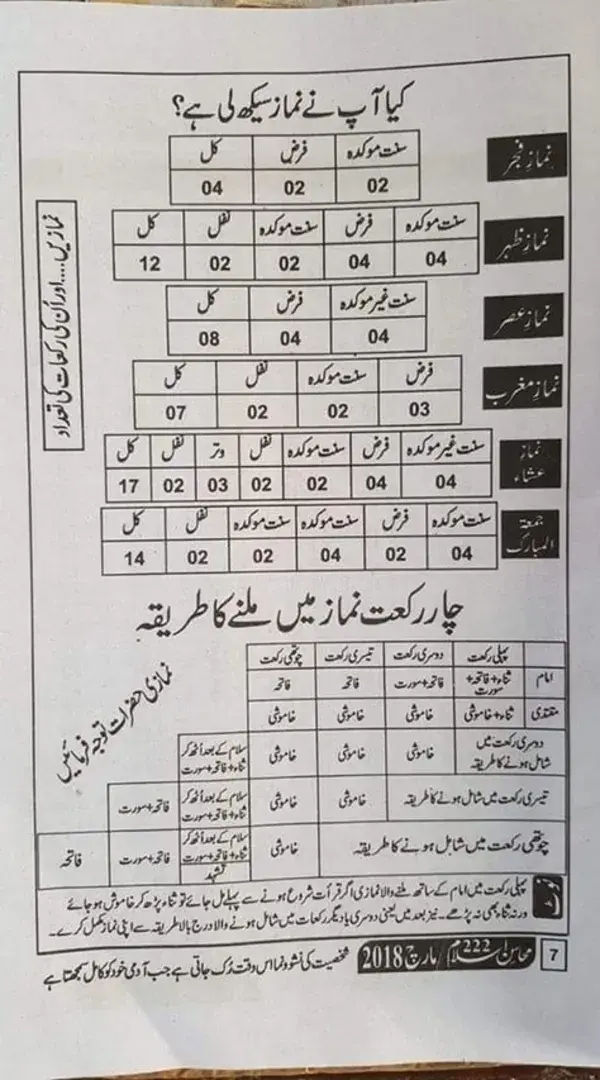 کیا آپ نے نماز سیکھ لی ہے؟
نمازیں....اور اُن کی رکعات کی تعداد
نمازِ فجر
سنت موکدہ فرض کل
02 02 04
نمازِ ظہر
سنت موکدہ فرض سنت موکدہ نفل کل
04 04 02 02 12
نمازِ عصر
سنت غیر موکدہ فرض کل
04 04 08
نمازِ مغرب
فرض سنت موکدہ نفل کل
03 02 02 07
نماز عشاء
سنت غیر موکدہ فرض سنت موکدہ نفل وتر نفل کل
04 04 02 02 03 02 17
جمعۃ المبارک
سنت موکدہ فرض سنت موکدہ سنت موکدہ نفل کل
04 02 04 02 02 14
چار رکعت نماز میں ملنے کا طریقہ
نمازی حضرات توجہ فرمائیں
پہلی رکعت دوسری رکعت تیسری رکعت چوتھی رکعت
امام ثناء+فاتحہ+سورت فاتحہ+سورت فاتحہ فاتحہ
مقتدی ثناء+خاموشی خاموشی خاموشی خاموشی
دوسری رکعت میں شامل ہونے کا طریقہ خاموشی خاموشی خاموشی سلام کے بعد اُٹھ کر ثناء+فاتحہ+سورت
تیسری رکعت میں شامل ہونے کا طریقہ خاموشی خاموشی سلام کے بعد اُٹھ کر ثناء+فاتحہ+سورت فاتحہ+سورت
چوتھی رکعت میں شامل ہونے کا طریقہ خاموشی سلام کے بعد اُٹھ کر ثناء+فاتحہ+سورت تشہد فاتحہ+سورت فاتحہ
پہلی رکعت میں امام کے ساتھ ملنے والا نمازی اگر قرأت شروع ہونے سے پہلے مل جائے تو ثناء پڑھ کر خاموش ہو جائے
ورنہ ثناء بھی نہ پڑھے۔ نیز بعد میں یعنی دوسری یا دیگر رکعات میں شامل ہونے والا درج بالا طریقہ سے اپنی نماز مکمل کرے۔
7 محاسنِ اسلام 222 / مارچ 2018 شخصیت کی نشوونما اس وقت رُک جاتی ہے جب آدمی خود کو کامل سمجھتا ہے